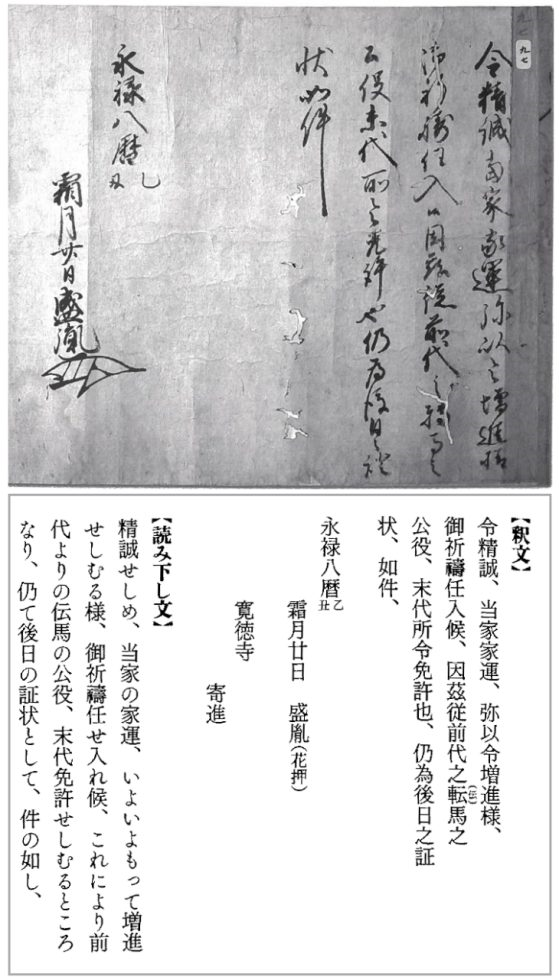 九七
令精誠当家家運弥以令増進様
御祈祷任入候因茲従前代之転馬之
公役末代所令免許也仍為後日之証
状如件
永禄八暦乙丑
霜月廿日盛胤
【釈文】
令精誠、当家家運、弥以令増進様、
御祈禱任入候、因茲従前代之転(伝)馬之
公役、末代所令免許也、仍為後日之証
状、如件、
永禄八暦乙丑
霜月廿日 盛胤(花押)
寛徳寺
寄進
【読み下し文】
精誠せしめ、当家の家運、いよいよもって増進
せしむる様、御祈禱任せ入れ候、これにより前
代よりの伝馬の公役、末代免許せしむるところ
なり、仍て後日の証状として、件の如し、